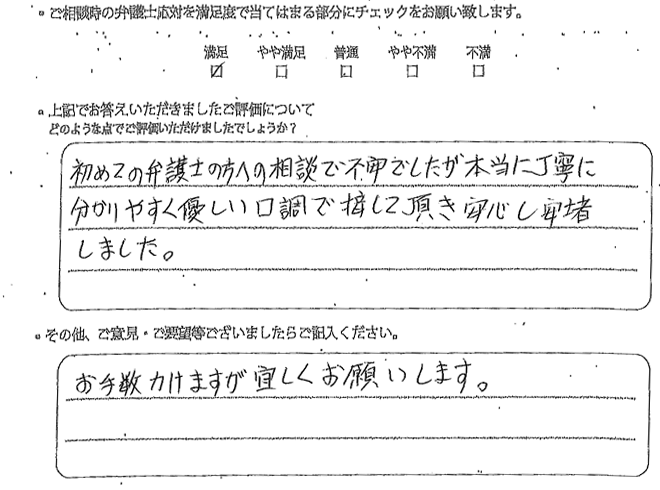 ご相談時の弁護士応対を満足度で当てはまる部分にチェックをお願い致します。
満足 やや満足 普通 やや不満 不満
☑ □ □ □ □
上記でお答えいただきましたご評価について
どのような点でご評価いただけましたでしょうか？
初めての弁護士の方への相談で不安でしたが本当に丁寧に
分かりやすく優しい口調で接して頂き安心し安堵
しました。
その他、ご意見・ご要望等ございましたらご記入ください。
お手数かけますが宜しくお願いします。